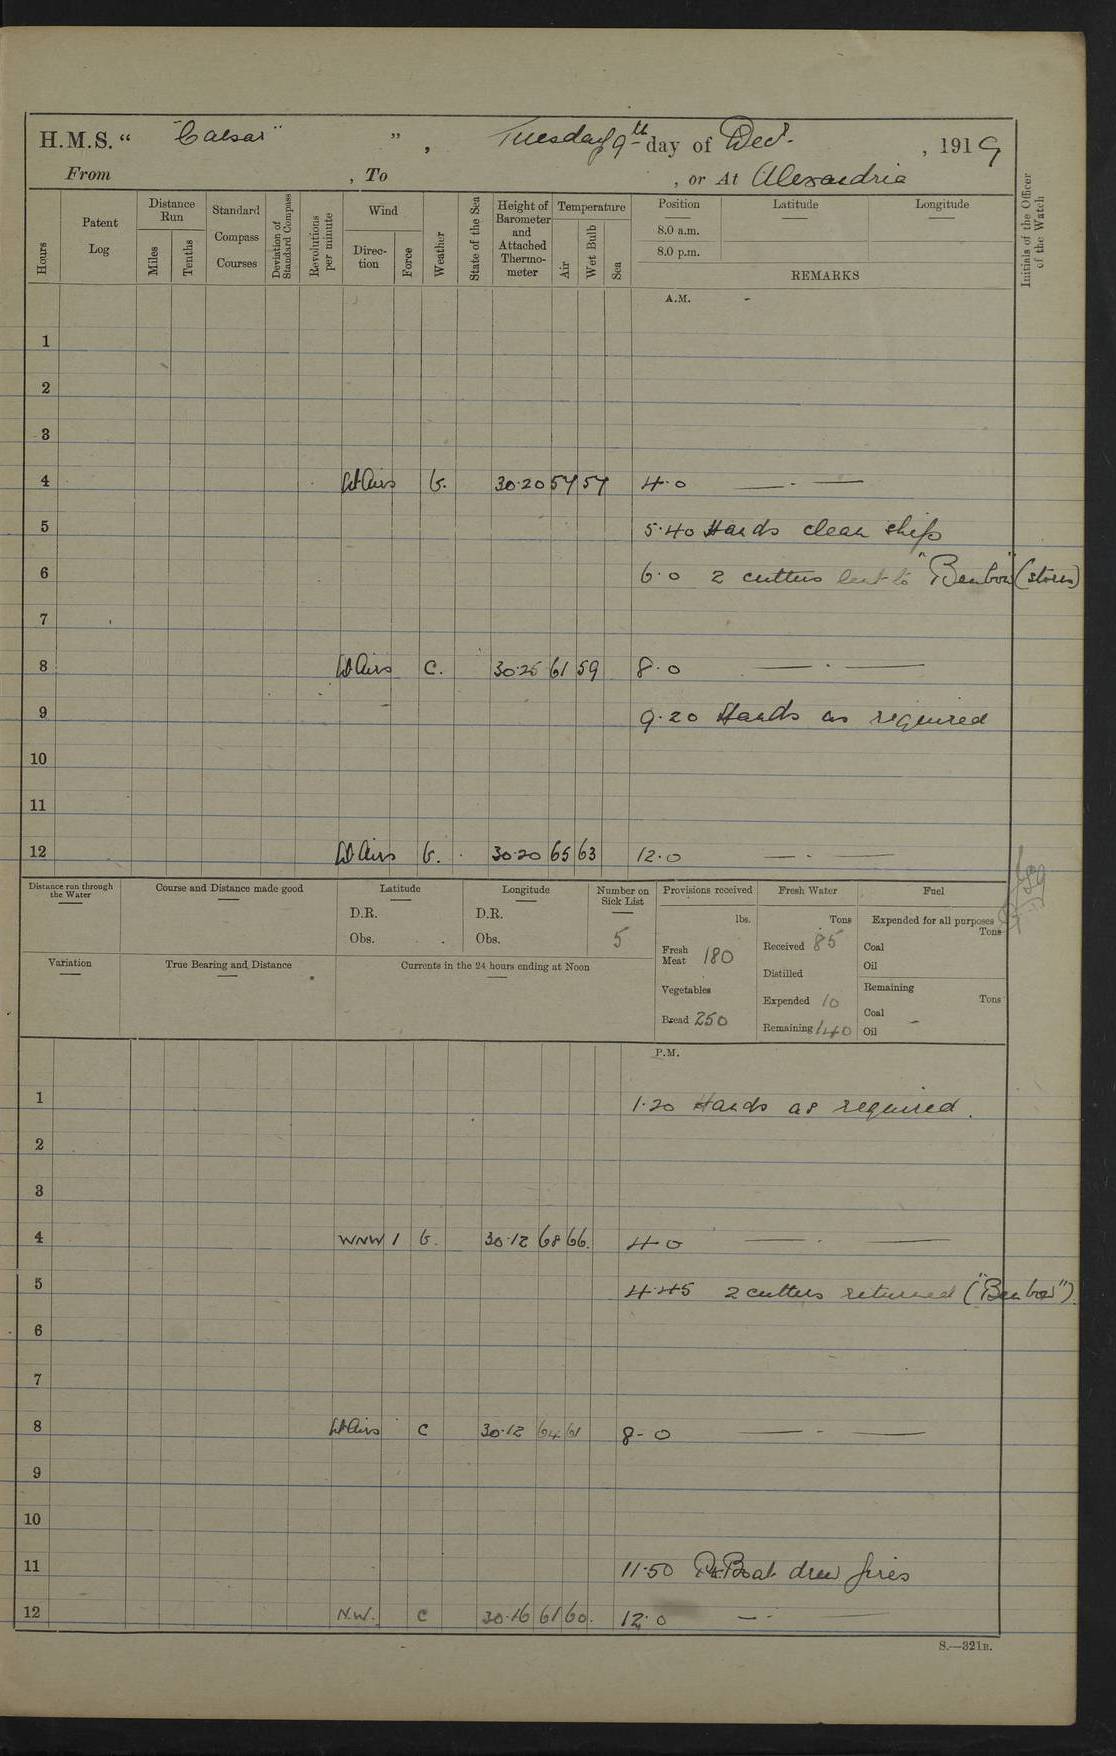 H.M.S. “ "Caesar" ” , Tuesday 9th day of Decr. , 1919
From , To , or At Alexandria
Hours
Patent Log
Distance Run
Miles
Tenths
Standard Compass Courses
Deviation of Standard Compass
Revolutions per minute
Wind
Direction
Force
Weather
State of the Sea
Height of Barometer and Attached Thermometer
Temperature
Air
Wet Bulb
Sea
Position Latitude Longitude
8.0 a.m.
8.0 p.m.
REMARKS
Initials of the Officer of the Watch
A.M.
1
2
3
4 Lt Airs b. 30.20 57 57 4.0 — . —
5 5.40 Hands clean ship
6 6.0 2 cutters lent to "Benbow" (stores)
7
8 Lt Airs c. 30.25 61 59 8.0 — . —
9 9.20 Hands as required
10
11
12 Lt Airs b. 30.20 65 63 12.0 — . —
Distance run through the Water
Course and Distance made good
Latitude
D.R.
Obs.
Longitude
D.R.
Obs.
Number on Sick List
5
Variation
True Bearing and Distance
Currents in the 24 hours ending at Noon
Provisions received
lbs.
Fresh Meat 180
Vegetables
Bread 250
Fresh Water
Tons
Received 85
Distilled
Expended 10
Remaining 140
Fuel
Expended for all purposes
Tons
Coal
Oil
Remaining
Tons
Coal
Oil -
P.M.
1 1.20 Hands as required.
2
3
4 WNW 1 b. 30.12 68 66. 4.0 — . —
5 4.45 2 cutters returned ("Benbow")
6
7
8 Lt Airs c 30.12 64 61 8-0 — . —
9
10
11 11.50 Pkt Boat drew fires
12 N.W. c 30.16 61 60. 12.0 — . —
S.—321B.